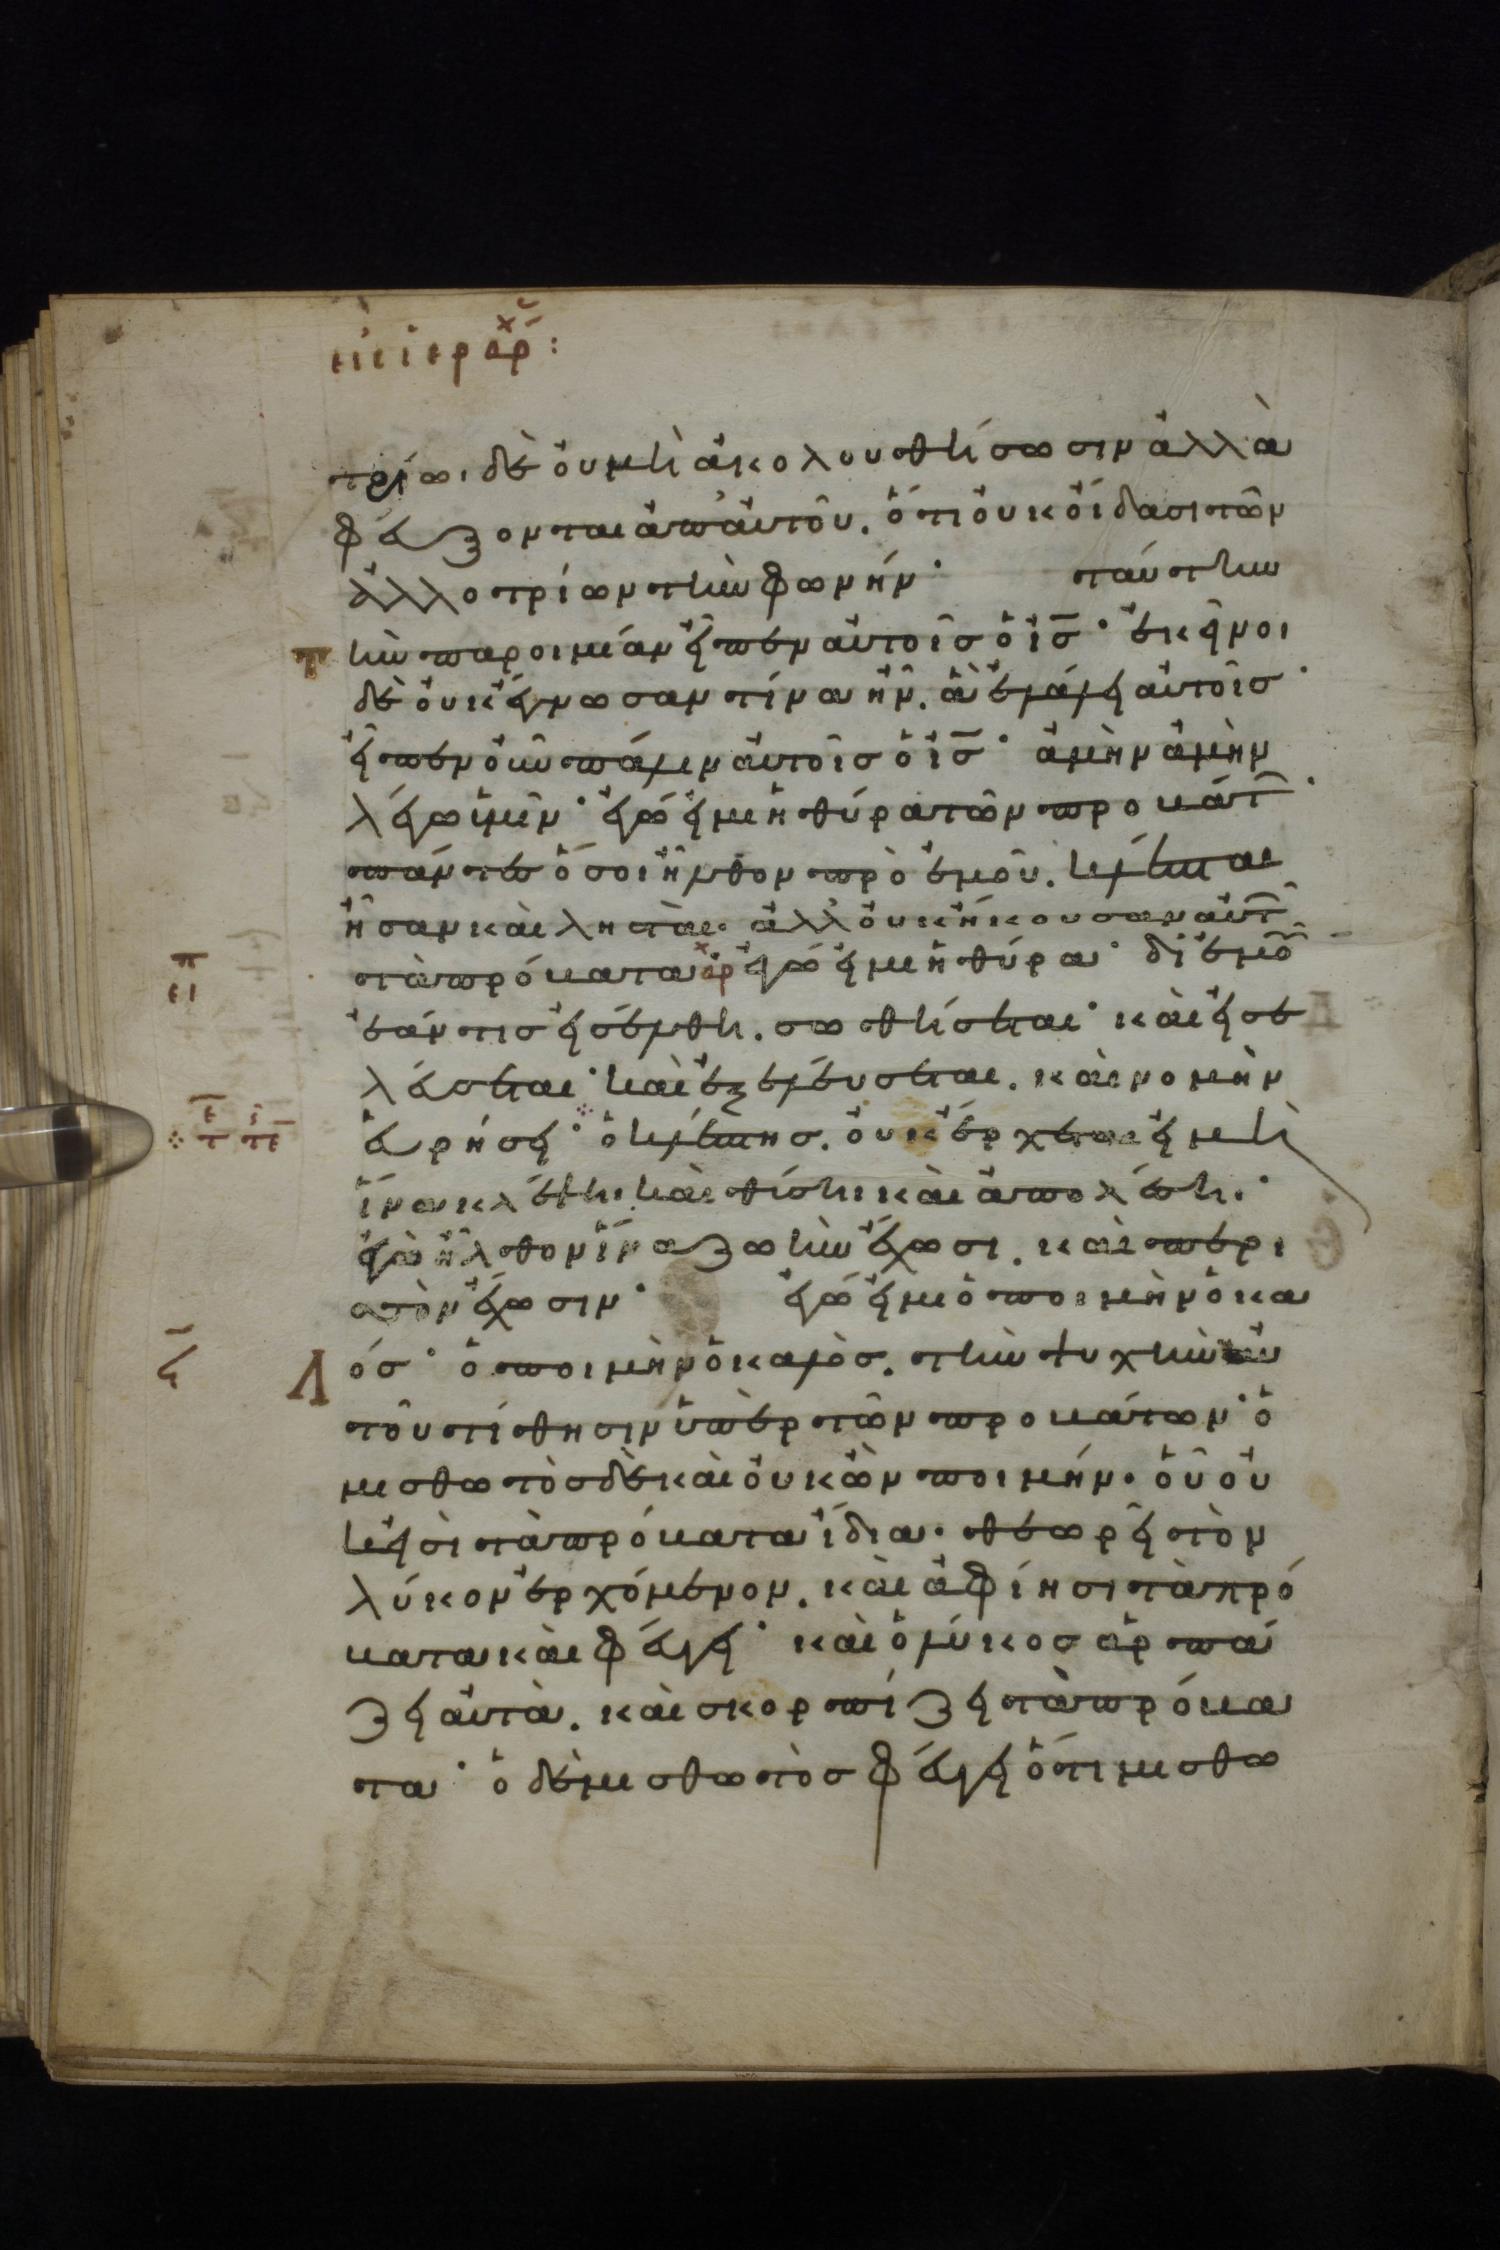 τρίωι δὲ οὐ μὴ ἀκολουθήσωσιν ἀλλὰ
φεύξονται ἀπ' αὐτοῦ. ὅτι οὐκ οἴδασι τῶν
ἀλλοτρίων τὴν φωνήν· ταύτην
τὴν παροιμίαν εἶπεν αὐτοῖς ὁ ἰ̅ς̅· ἐκεῖνοι
δὲ οὐκ ἔγνωσαν τίνα ἦν. ἃ ἐλάλει αὐτοῖς·
εἶπεν οὖν πάλιν αὐτοῖς ὁ ἰ̅ς̅· ἀμὴν ἀμὴν
λέγω ὑμῖν· ἐγώ εἰμι ἡ θύρα τῶν προβάτ·
πάντες ὅσοι ἦλθον πρὸ ἐμοῦ. κλέπται
ἦσαν καὶ λησταί. ἀλλ' οὐκ ἤκουσαν αὐτ
τὰ πρόβατα ἀρ ἐγώ εἰμι ἡ θύρα· δι' ἐμοῦ
ἐάν τις εἰσέλθη. σωθήσεται· καὶ εἰσε
λεύσεται· καὶ ἐξελεύσεται. καὶ νομὴν
εὑρήσει· ὁ κλέπτης. οὐκ ἔρχεται εἰ μὴ
ἵνα κλέψη. καὶ θύση καὶ ἀπολέση.·
ἐγὼ ἦλθον ἵνα ζωὴν ἔχωσι. καὶ περι
σσὸν ἔχωσιν· ἐγώ εἰμι ὁ ποιμὴν ὁ κα
λός· ὁ ποιμὴν ὁ καλὸς. τὴν ψυχὴν αὐ
τοῦ τίθησιν ὑπὲρ τῶν προβάτων· ὁ
μισθωτὸς δὲ καὶ οὐκ ὢν ποιμήν. οὗ οὐ
κ εἰσὶ τὰ πρόβατα ἴδια. θεωρεῖ τὸν
λύκον ἐρχόμενον. καὶ ἀφίησι τὰ πρό
βατα καὶ φεύγει· καὶ ὁ λύκος ἁρπά
ζει αὐτὰ. καὶ σκορπίζει τὰ πρόβα
τα· ὁ δὲ μισθωτὸς φεύγει ὅτι μισθω